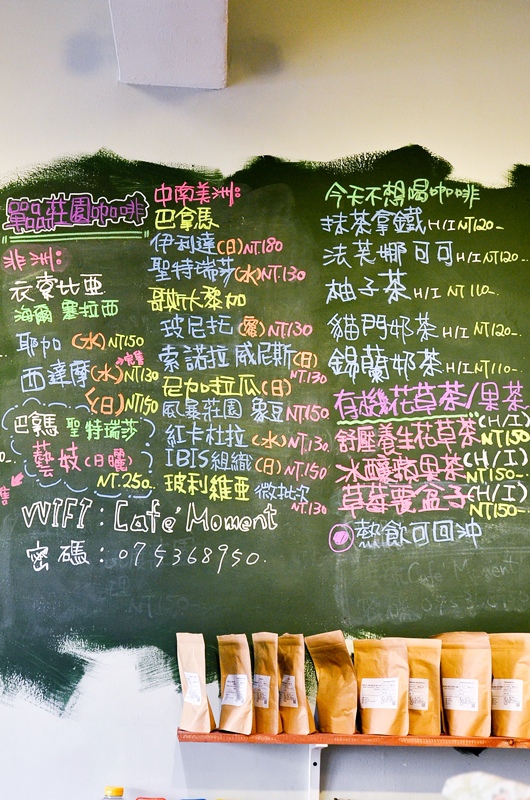 單品莊園咖啡
非洲:
衣索比亞
海爾 塞拉西
耶加 (水) NT150
西達摩 (水) NT130
(日) NT150
巴拿馬 聖特瑞莎
藝妓 (月曬)
NT.250.
中南美洲:
巴拿馬
伊利達 (日) NT.180
聖特瑞莎 (水) NT.130
哥斯大黎加
玻尼托 (蜜) NT.130
索諾拉 威尼斯 (日)
NT.130
尼加拉瓜 (日)
風暴莊園 象豆 NT150
紅卡杜拉 (水) NT.130
IBIS組織 (日) NT.150
玻利維亞 微批次
NT.130
今天不想喝咖啡
抹茶拿鐵 H/I NT120-
法芙娜可可 H/I NT120-
柚子茶 H/I NT 110-
貓門邨茶 H/I NT120-
錫蘭邨茶 H/I NT110-
有機花草茶/果茶
舒壓養生花草茶 (H/I) NT150-
冰釀蘋果茶 (H/I) NT150-
草莓覆盆子 (H/I)
NT150-
熱飲可回沖
WIFI: Café Moment
密碼: 075368950.